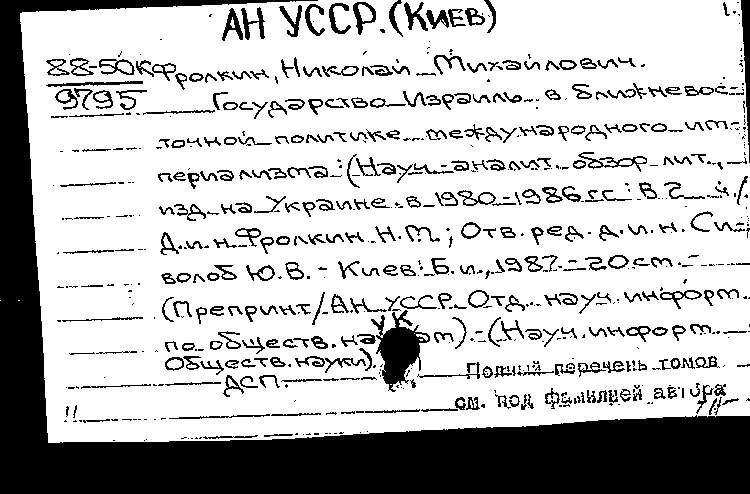 АН УССР. (КИЕВ)
1.
88-50К Фролкин, Николай Михайлович.
9795 Государство Израиль в ближневос-
точной политике международного им-
периализма: (Науч.-аналит. обзор лит.,
изд. на Украине в 1980-1986 гг.: В 2 ч. /
Д.и.н. Фролкин Н.М.; Отв. ред. д.и.н. Си-
волоб Ю.В. - Киев: Б.и., 1987. - 20 см. -
(Препринт / АН УССР. Отд. науч. информ.
УК
по обществ. наукам). - (Науч. информ.
Обществ. науки).
ДСП.
Полный перечень томов
см. под фамилией автора